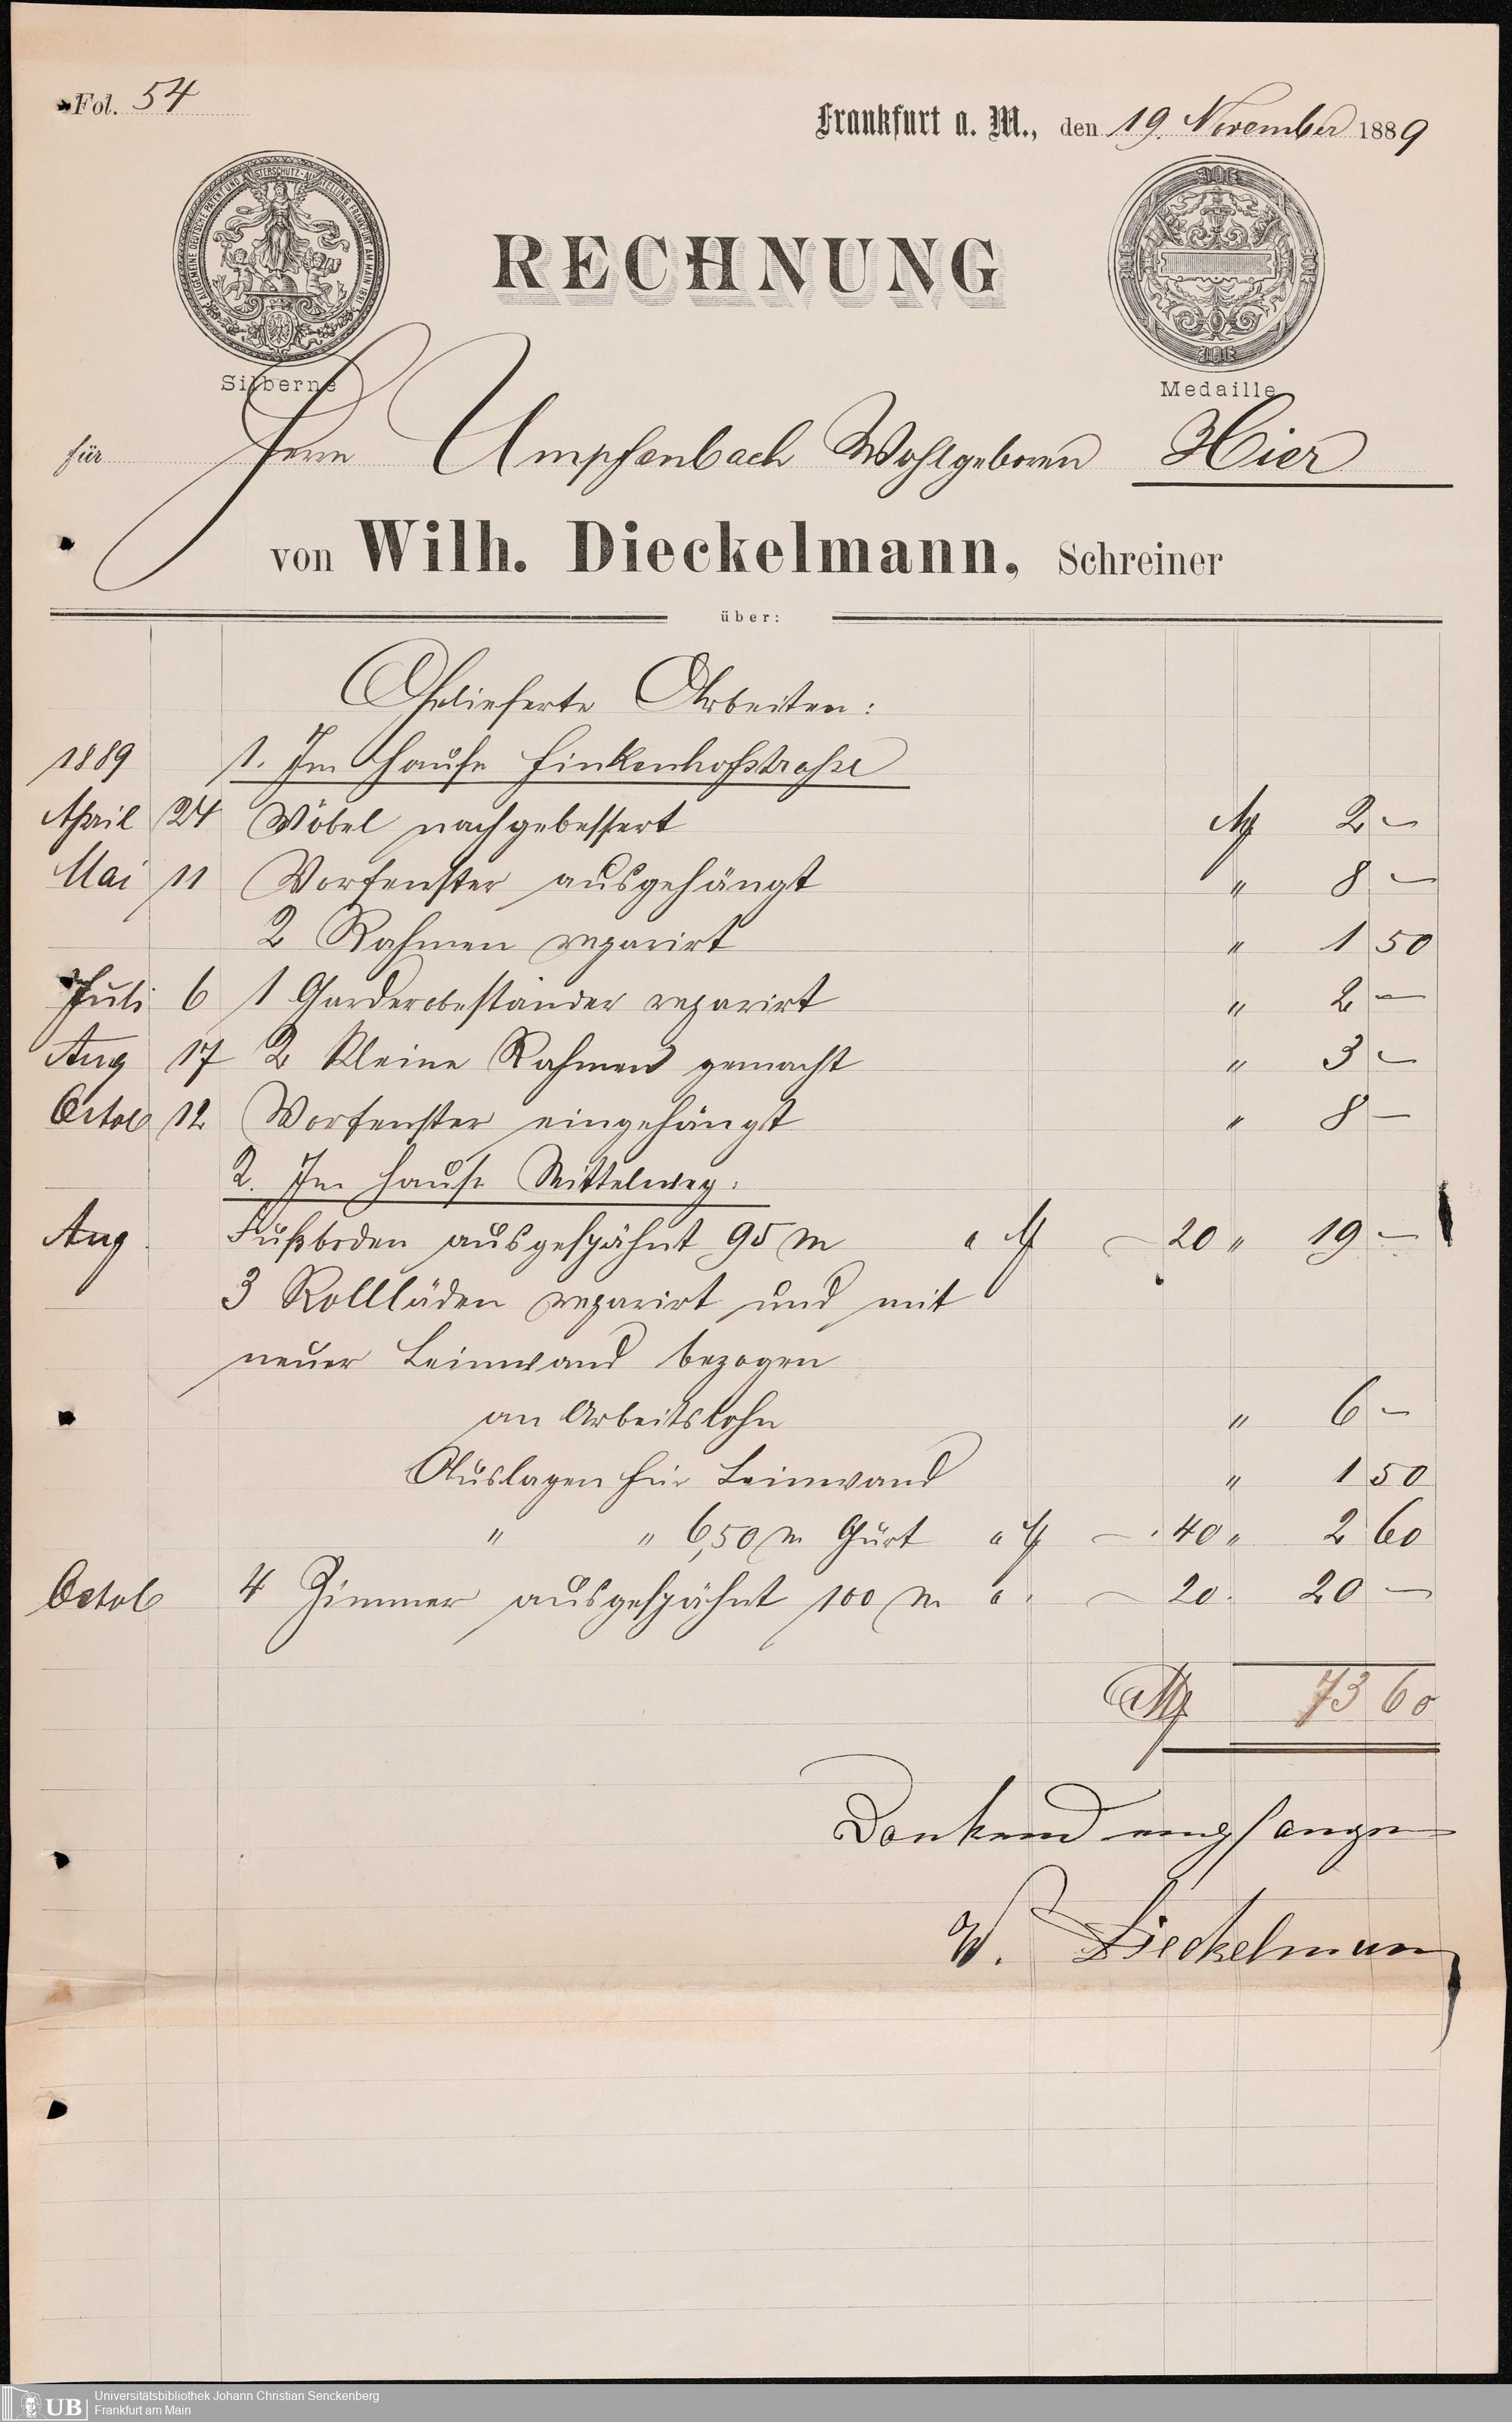 Fol. 54
Frankfurt a. M., den 19. November 1889
ALLGEMEINE DEUTSCHE PATENT UND MUSTERSCHUTZ-AUSSTELLUNG FRANKFURT AM MAIN 1881
RECHNUNG
Silberne Medaille
für Herrn Umpfenbach Wohlgeboren Hier
von Wilh. Dieckelmann, Schreiner
über:
Gelieferte Arbeiten:
1889 1. Im Hause Finkenhofstraße
April 24 Möbel nachgebessert M 2 —
Mai 11 Vorfenster ausgehängt " 8 —
2 Rahmen reparirt " 1 50
Juli 6 1 Garderobeständer reparirt " 2 —
Aug 17 2 kleine Rahmen gemacht " 3 —
Octob 12 Vorfenster eingehängt " 8 —
2. Im Hause Mittelweg.
Aug. Fußboden ausgespähnt 95 m a M — 20 " 19 —
3 Rollläden reparirt und mit
neuer Leinwand bezogen
an Arbeitslohn " 6 —
Auslagen für Leinwand " 1 50
" " 6,50 m Gurt a M — 40 " 2 60
Octob 4 Zimmer ausgespähnt 100 m a " — 20 20 —
M 73 60
Dankend empfangen
W. Dieckelmann
UB Universitätsbibliothek Johann Christian Senckenberg
Frankfurt am Main